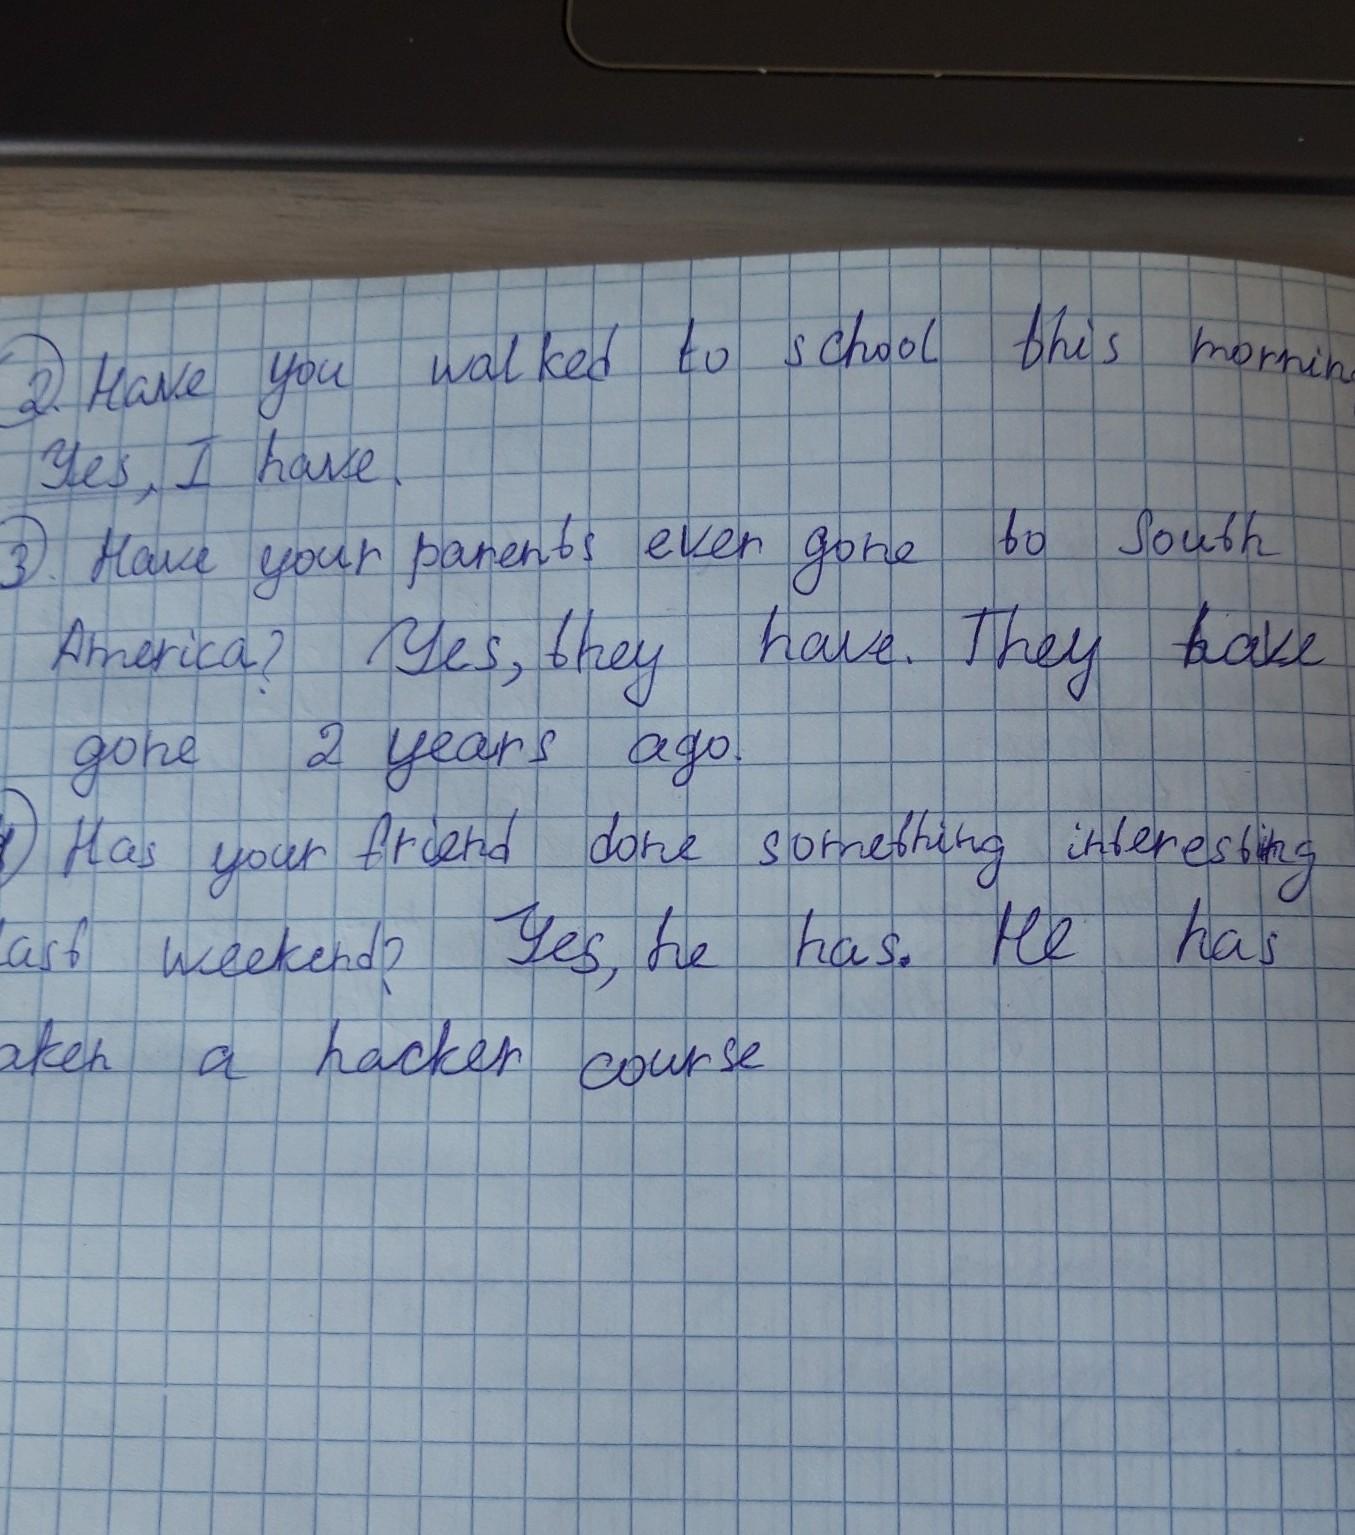 2. Have you walked to school this mornin
Yes, I have.
3. Have your parents ever gone to South
America? Yes, they have. They have
gone 2 years ago.
Has your friend done something interesting
last weekend? Yes, he has. He has
aken a hacker course